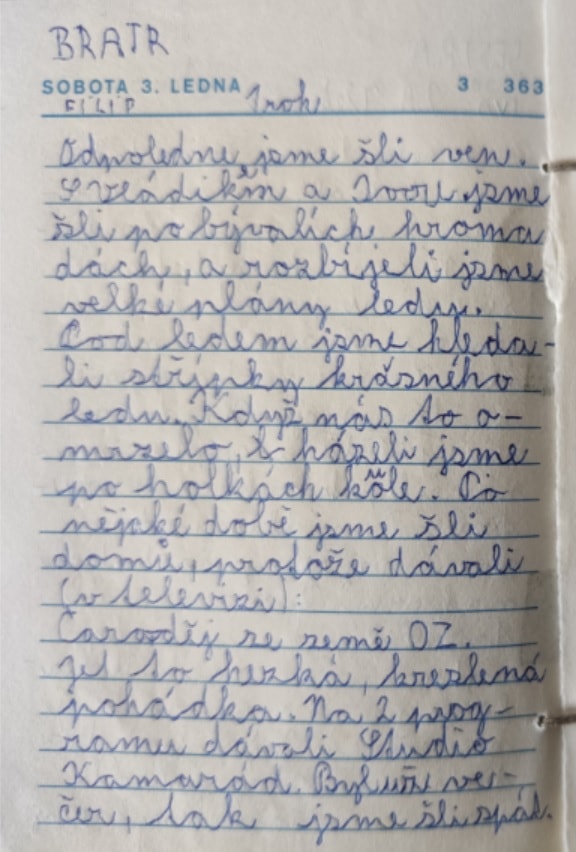 BRATR
SOBOTA 3. LEDNA 3 363
FILIP 1 rok
Odpoledne jsme šli ven.
S Vládíkem a Ivou jsme
šli po bývalích hroma
dách, a rozbíjeli jsme
velké plány ledu.
Pod ledem jsme hleda-
li střípky krásného
ledu. Když nás to o-
mrzelo, házeli jsme
po holkách kůle. Po
nějaké době jsme šli
domů, protože dávali
(v televizi):
Čaroděj ze země OZ.
Je to hezká, kreslená
pohádka. Na 2 prog-
ramu dávali Studio
Kamarád. Byl uži ve-
čer, tak jsme šli spát.